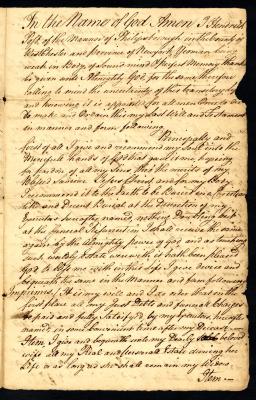 In the Name of God Amen I Hendrick
Post of the Mannor of Philipsborough in the County of
Westchester and province of Newyork Yeoman being
weak in Body of sound mind & perfect Memory thanks
be given unto Almighty God for the same therefore
calling to mind the uncertainty of this transitory life
and knowing it is appointed for all men Once to die
to make and Ordain this my last Will and Testament
in manner and form following
Principally and
first of all I give and recommend my Soul into the
Mercifull hands of God that gave it me, hopeing
for pardon of all my Sins thro the merits of my
Blessed
I recommend it to the Earth to be Buried in a Christian
like and Decent Burial at the Discretion of my
Executors hereafter named, nothing Doubting but
at the General Resurrection I shall receive the same
again by the Almighty power of God and as touching
such worldly Estate wherewith it hath been pleased
God to bless me with in this Life I give devise and
bequeath the same in the Manner and form following
Imprimis, it is my will and I do order that in the
first place all my Just Debts and funeral Charges
be paid and fully Satisfy'd by my Executors hereafter
named in some Convenient time after my Decease
Item, I give and bequeath unto my Dearly beloved
wife all my Real and Personal Estate dureing her
Life or as long as she shall remain my Widow
Item